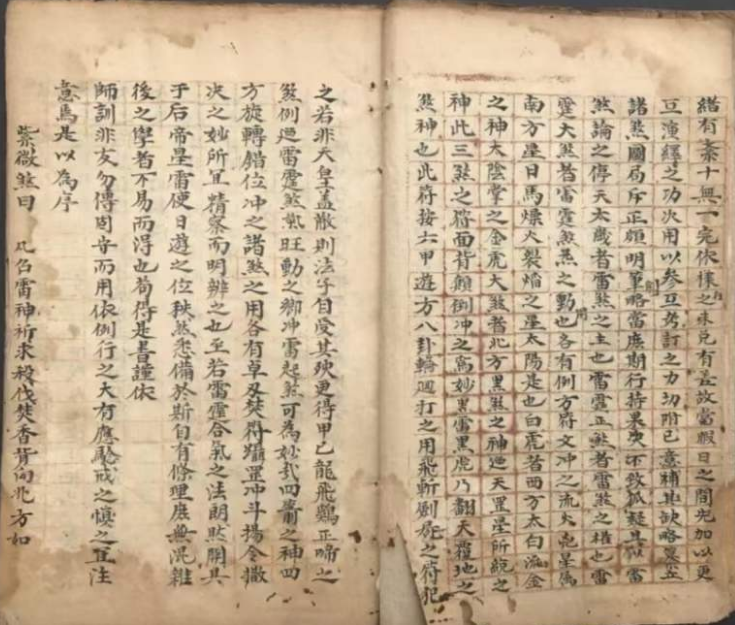 緒有紊十無一完依樣之未免有差故當暇日之間先加以更
互演繹之功次用以參互考訂之力切附已意補其缺略裒並
諸煞圖局斥正頗明筆略當庶期行持果決不致狐疑具如雷
煞論之傳天太歲者雷煞之主也雷霆正煞者雷煞之權也雷
霆大煞者雷霆煞炁之動也各有例方符文冲之流火鬼星馬
南方星日馬爍火裂焰之星太陽是也白虎者西方太白流金
之神太陰掌之金虎大煞者北方黑煞之神廼天罡星所統之
神此三煞之符面背顛倒冲之為妙黑雷黑虎乃翻天覆地之
煞神也此符按六甲遊方八卦輪迴打之用飛斬剧屍之符犯
之若非天皇盖散則法子自受其殃更得甲己龍飛鷄正啼之
煞例廼雷霆煞炁旺動之鄉冲雷起煞可為妙哉四
方旋轉錯位冲之諸煞之用各有草及焚符躡罡冲斗揚令撒
決之妙所宜精察而明辨之也至若雷霆合氣之法朗然開具
于后帝星雷使日遊之位秩然悉備於斯自有條理庶無混雜
後之學者不易而得也苟得是書謹依
師訓非友勿傳因音而用依例行之大有應驗戒之慎之宜注
意焉是以為序
紫微煞曰 凡召雷神祈求殺伐焚香背向北方如